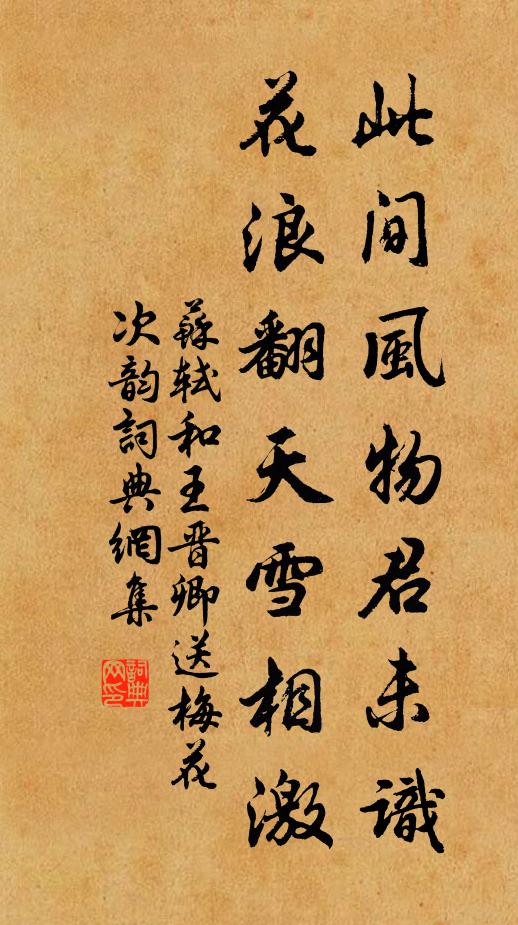 此间風物君未識
花浪翻天雪相激
蘇軾和王晋卿送梅花
次韵詞典網集
詞典
网印